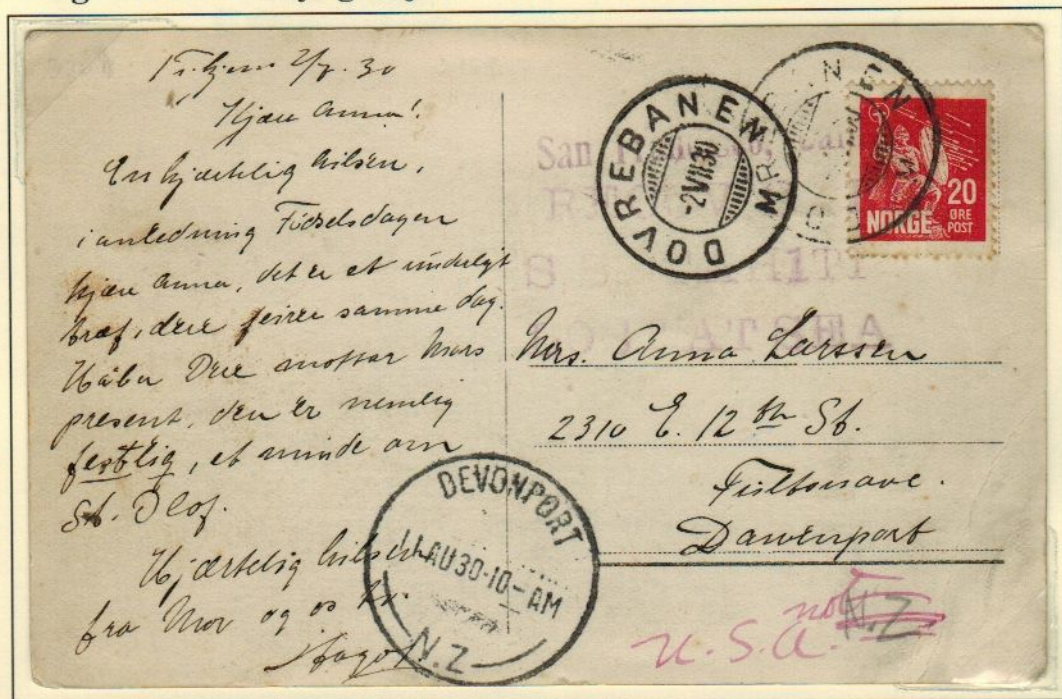 2/7. 30
Kjære Anna!
En hjærtelig hilsen,
i anledning Fødselsdagen
kjære Anna, det er et underligt
træf, dere feirer samme dag.
Håber Dere mottar Mors
present, den er nemlig
festlig, et minde om
St. Olof.
Hjærtelig hilsen
fra Mor og os
DOVREBANEN
-2VII30
San
S.S. TAHITI
AT SEA
NORGE
20
ØRE
POST
Mrs. Anna Larssen
2310 E. 12th St.
Davenport
DEVONPORT
11 AU 30-10-AM
N.Z
not N.Z
U.S.A.